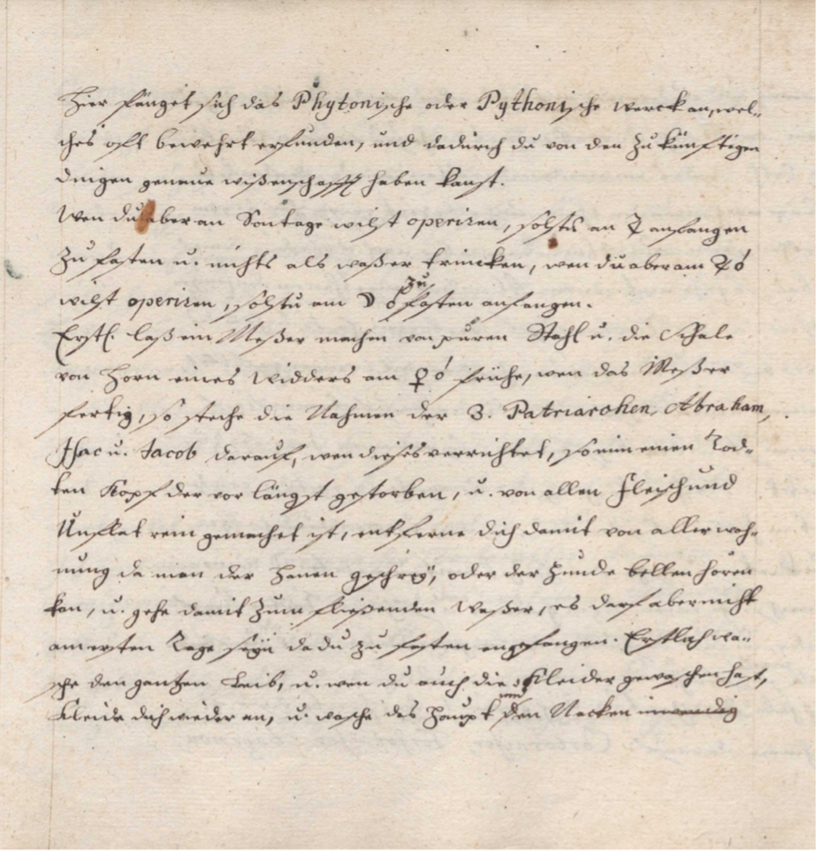 Hier fänget sich das Phytonische oder Pythonische werck an, wel-
ches oft bewehrt erfunden, und dadurch du von den Zukünftigen
dingen geneue wißenschafft haben kanst.
Wen du aber an Sontage wilst operiren, solstu an ☿ anfangen
Zu fasten u. nichts als waßer trincken, wen du aber am
wilst operiren, solstu am ☽ zu fasten anfangen.
Erstl. laß ein Meßer machen von puren Stahl u. die Schale
von Horn eines Widders am ♀ frühe, wen das Meßer
fertig, so steche die Nahmen der 3. Patriarchen, Abraham,
Isac u. Jacob darauf, wen dieses verrichtet, so nim einen Tod-
ten Kopf der vor längst gestorben, u. von allen Fleisch und
Unflat rein gemachet ist, entferne dich damit von aller woh-
nung da man der Hanen geschrey, oder der Hunde bellen hören
kan, u. gehe damit Zum fließenden Waßer, es darf aber nicht
am ersten Tage seyn da du zu fasten angefangen. Erstlich wa-
sche den gantzen Leib, u. wen du auch die Kleider gewaschen hast,
Kleide dich wieder an, u. wasche das Haupt und den Nacken inwendig